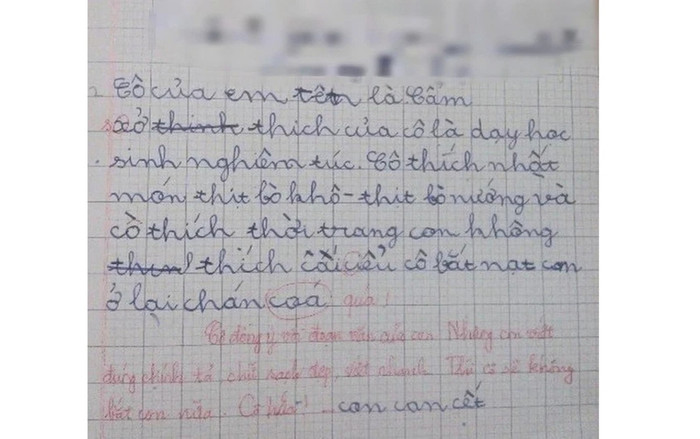 Cô của em tên là Cẩm
sở thinh thich của cô là dạy học
sinh nghiêm túc. Cô thích nhất
món thịt bò khô - thịt bò nướng và
cò thích thời trang con không
thích cái cô bắt nạt con
ở lại chán coá quá!
Cô đồng ý với đoạn văn của con Nhưng con viết
đúng chính tả, chữ sạch đẹp, viết nhanh Thì cô sẽ không
bắt con nữa. Cô hứa!
con can cết